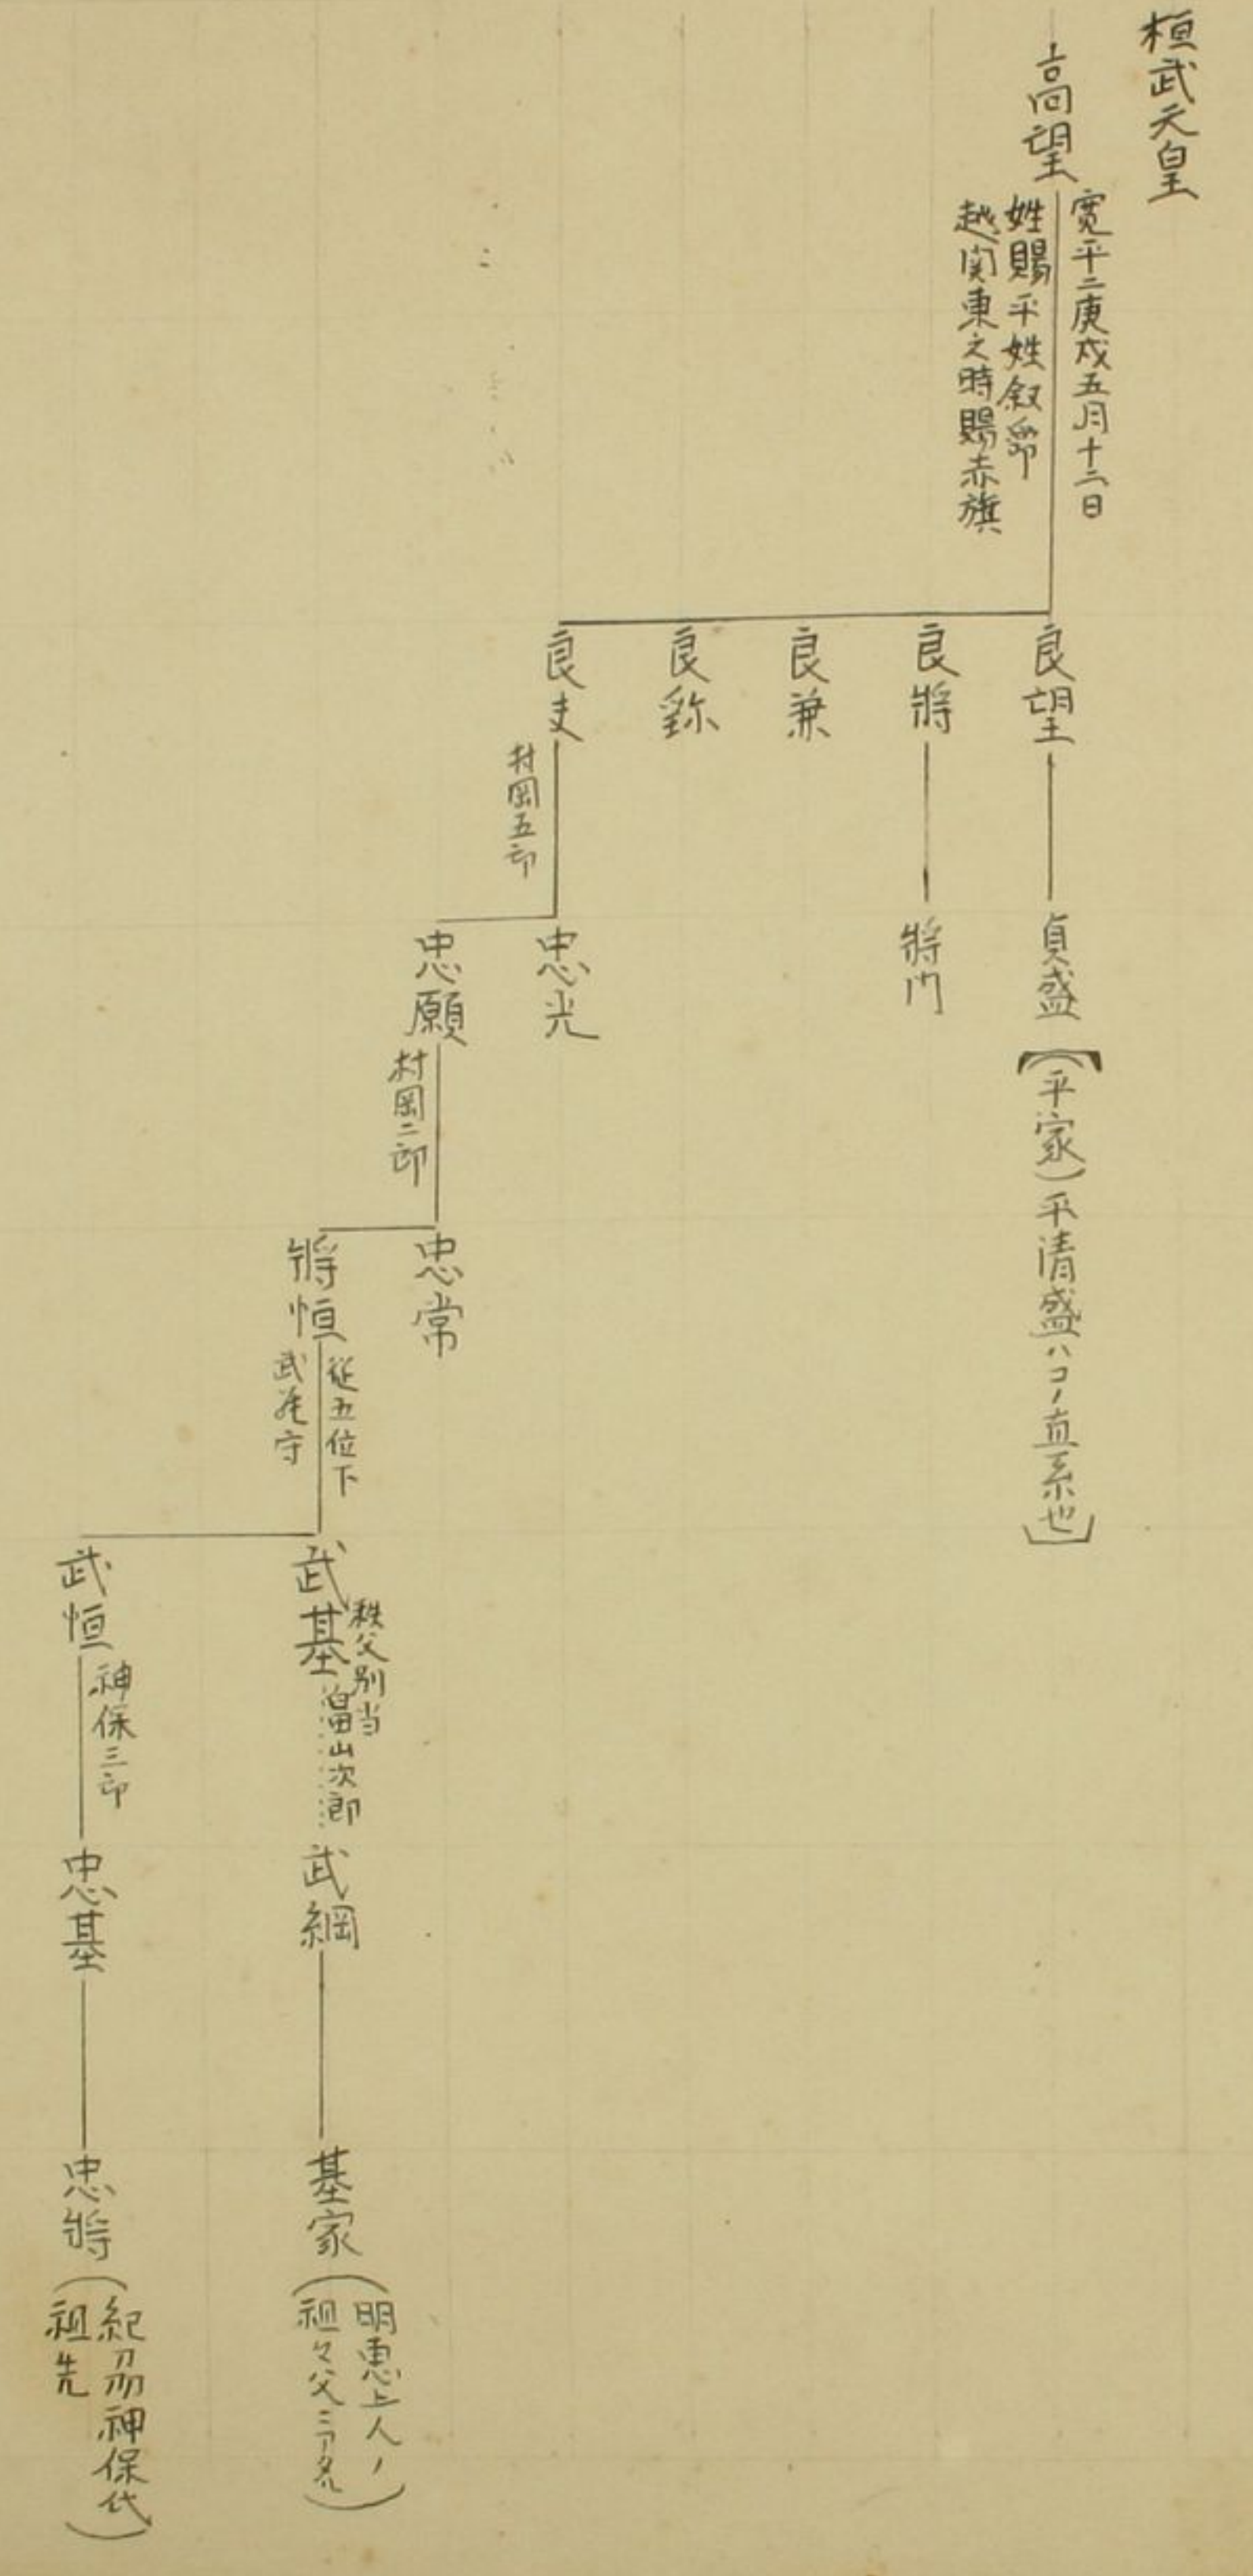 桓武天皇
高望
寛平二庚戌五月十二日
姓賜平姓叙爵
越関東之時賜赤旗
良望
貞盛
【(平家)平清盛ハコノ直系也】
良将
将門
良兼
良繇
良文
村岡五郎
忠光
忠願
村岡二郎
忠常
将恒
従五位下
武蔵守
武基
秩父別当
畠山次郎
武綱
基家
(明恵上人ノ
祖々父)
武恒
神保三郎
忠基
忠将
(紀刕神保代
祖先)